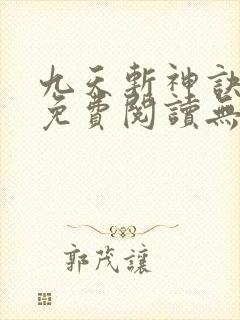 九天斬神訣
免費閱讀無
郭茂讓